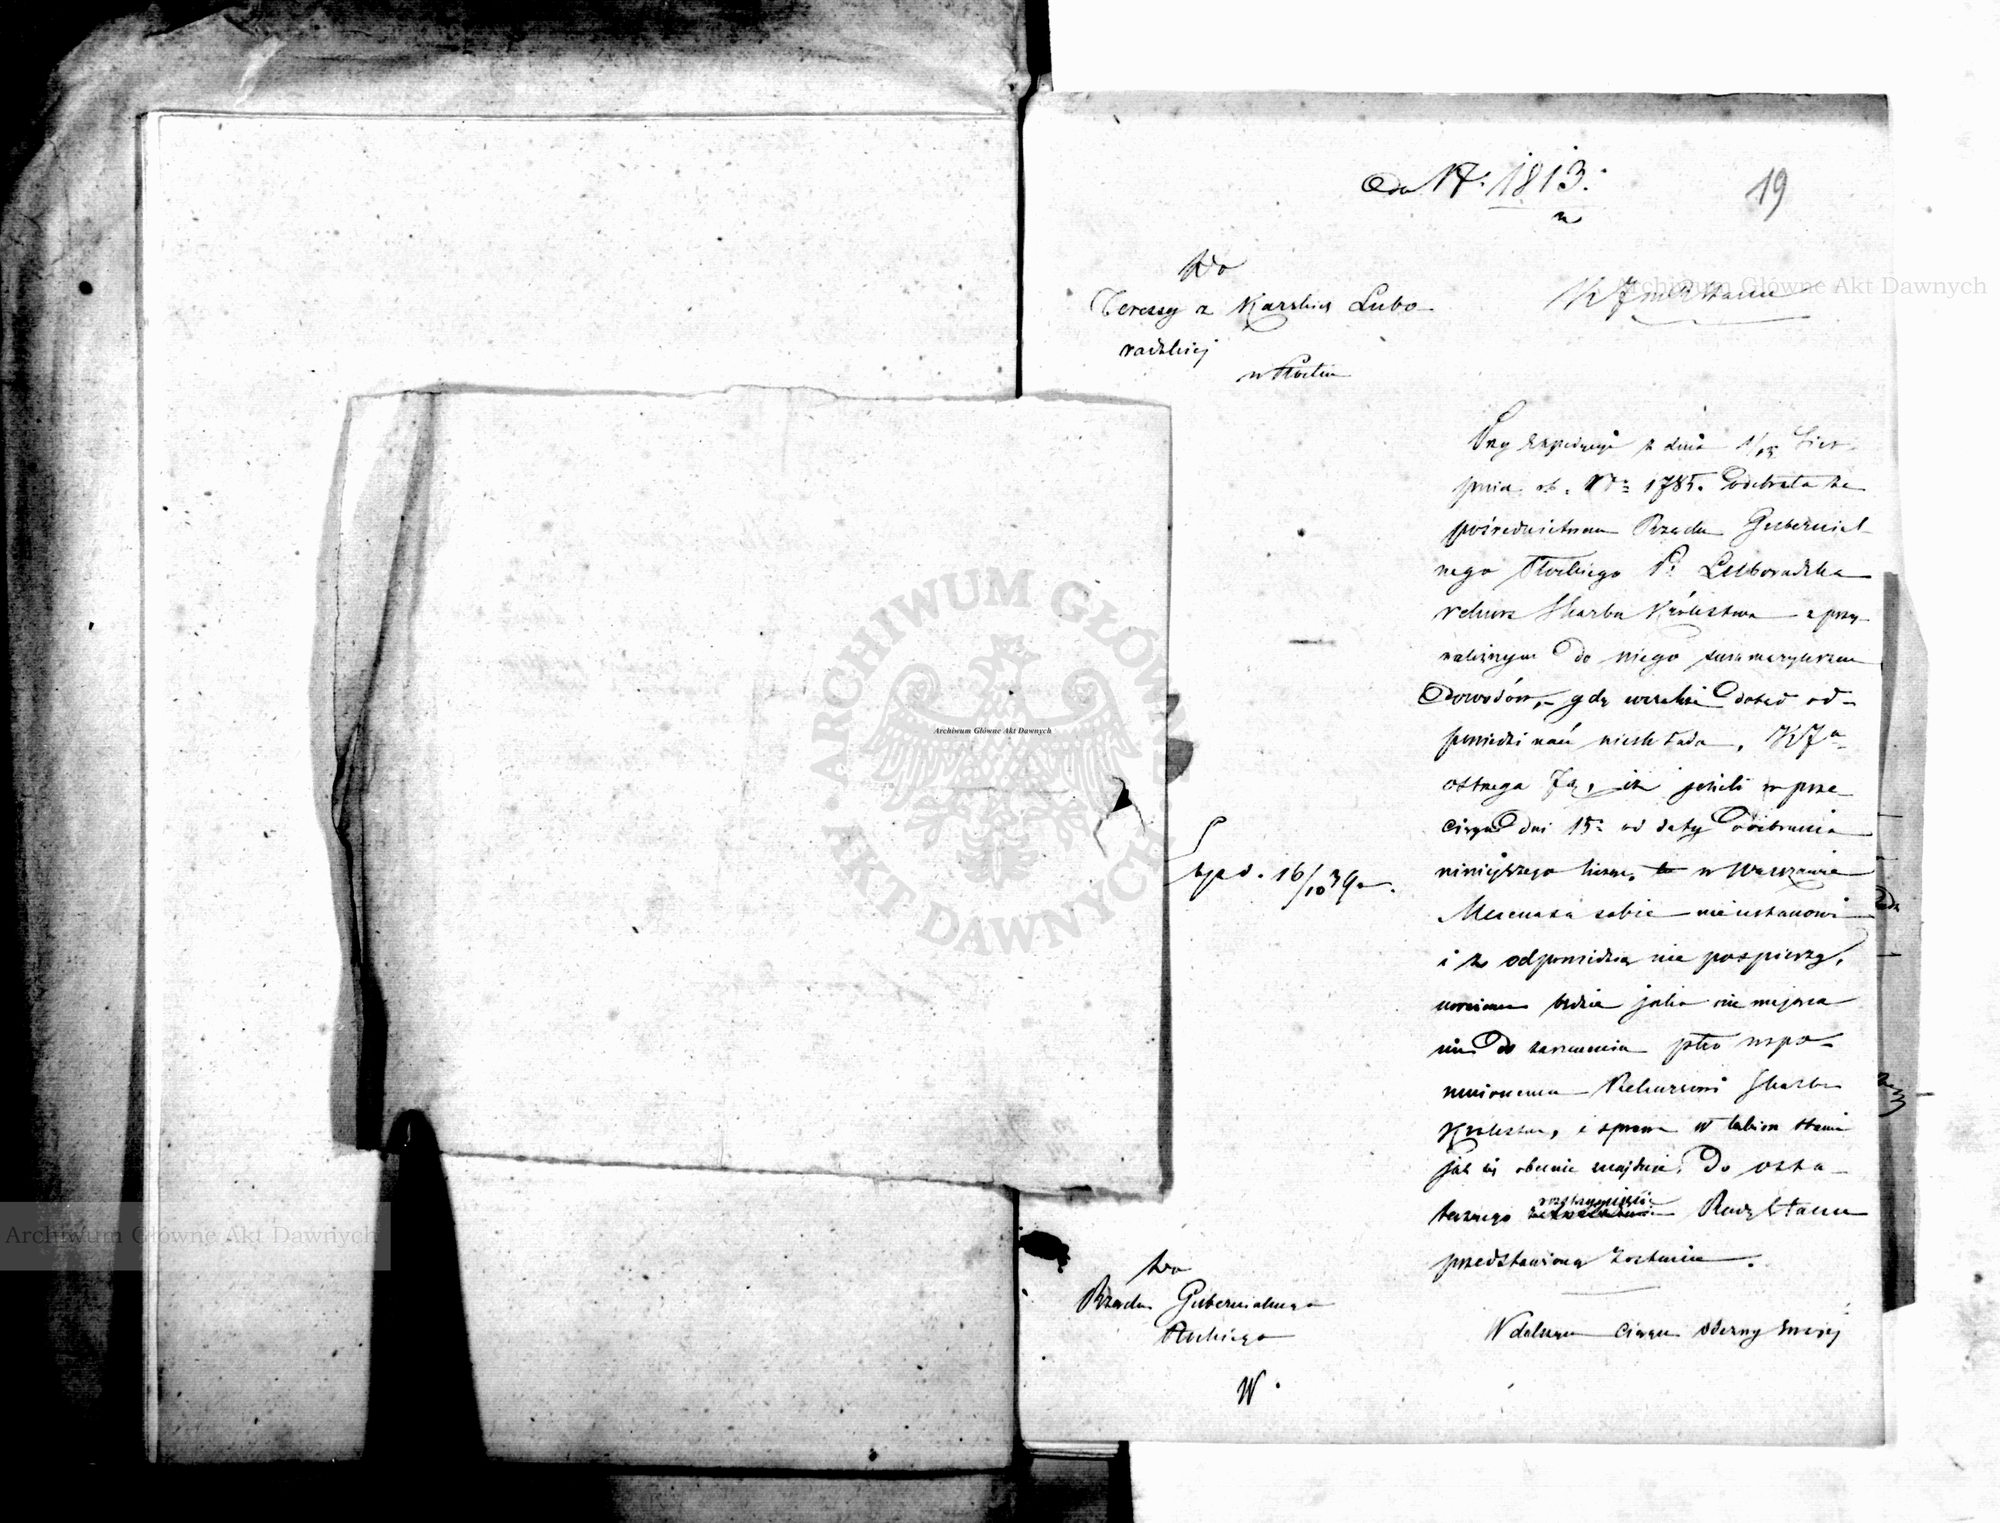 Ad N. 1813.
19
Do
Teressy z Karskich Lubo-
radzkiej
w Płocku
Przy expedycyi z dnia 1/13 Sier-
pnia r.b. N. 1785. odebrała za
pośrednictwem Rządu Gubernial-
nego Płockiego P. Luboradzka
rekurs Skarbu Królestwa z przy
należnym do niego summaryuszem
Dowodów, gdy wszakże dotąd od-
powiedzi nań nie składa,
ostrzega Ją, iż jeżeli w prze-
ciągu dni 15 od daty odebrania
niniejszego w Warszawie
Mecenasa sobie nie ustanowi
i z odpowiedzią nie pospieszy,
uważana będzie jako nie mająca
nic do zarzucenia wspo-
mnionemu Rekursowi Skarbu
Królestwa, i sprawa w takim stanie
jak się obecnie znajduje, do osta-
tecznego rozstrzygnięcia Rady Stanu
przedstawioną zostanie.
Exped. 16/10 39.
Do
Rządu Gubernialnego
Płockiego
W dalszym ciągu odezwy swojej
W.
Archiwum Główne Akt Dawnych
ARCHIWUM GŁÓWNE AKT DAWNYCH
Archiwum Główne Akt Dawnych
Archiwum Główne Akt Dawnych